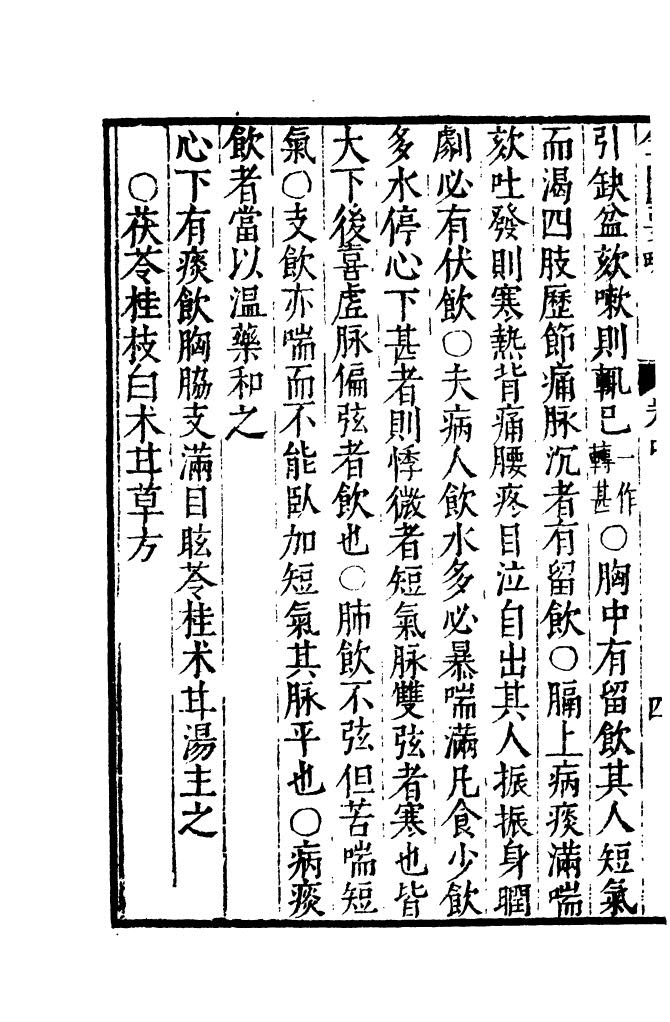 引缺盆欬嗽則輒已一作轉甚○胸中有留飲其人短氣
而渴四肢歷節痛脉沉者有留飲○膈上病痰滿喘
欬吐發則寒熱背痛腰疼目泣自出其人振振身瞤
劇必有伏飲○夫病人飲水多必暴喘滿凡食少飲
多水停心下甚者則悸微者短氣脉雙弦者寒也皆
大下後喜虛脉偏弦者飲也○肺飲不弦但苦喘短
氣○支飲亦喘而不能臥加短氣其脉平也○病痰
飲者當以温藥和之
心下有痰飲胸脇支滿目眩苓桂术甘湯主之
○茯苓桂枝白术甘草方
四